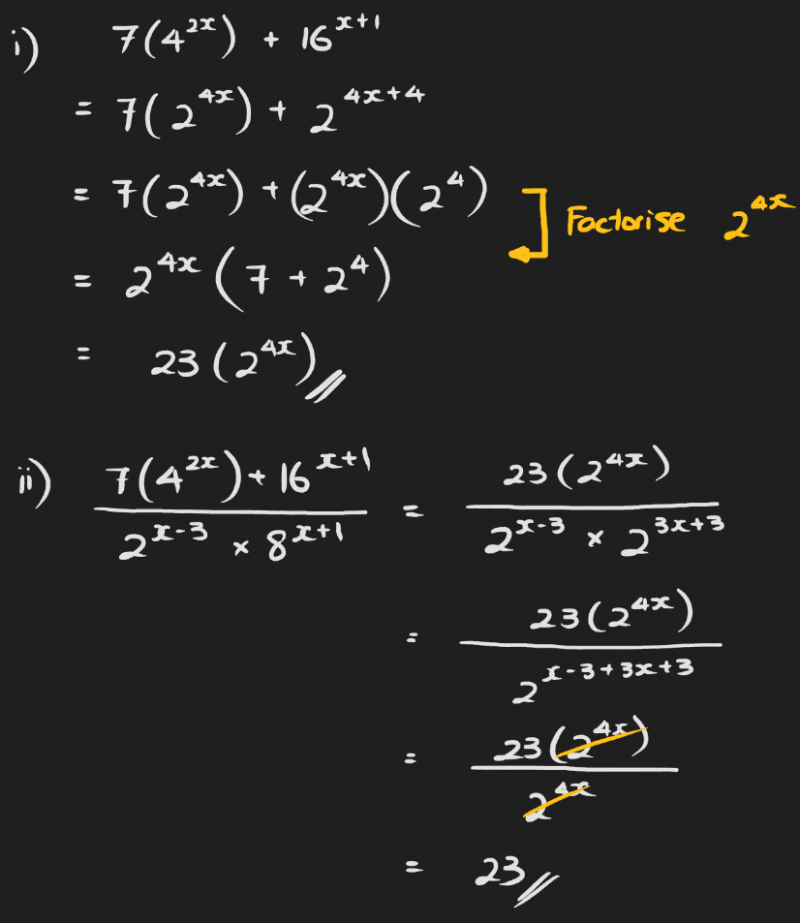 i) 7(4^{2x}) + 16^{x+1}
= 7(2^{4x}) + 2^{4x+4}
= 7(2^{4x}) + (2^{4x})(2^4) Factorise 2^{4x}
= 2^{4x}(7 + 2^4)
= 23(2^{4x})
ii) \frac{7(4^{2x}) + 16^{x+1}}{2^{x-3} × 8^{x+1}} = \frac{23(2^{4x})}{2^{x-3} × 2^{3x+3}}
= \frac{23(2^{4x})}{2^{x-3+3x+3}}
= \frac{23(2^{4x})}{2^{4x}}
= 23